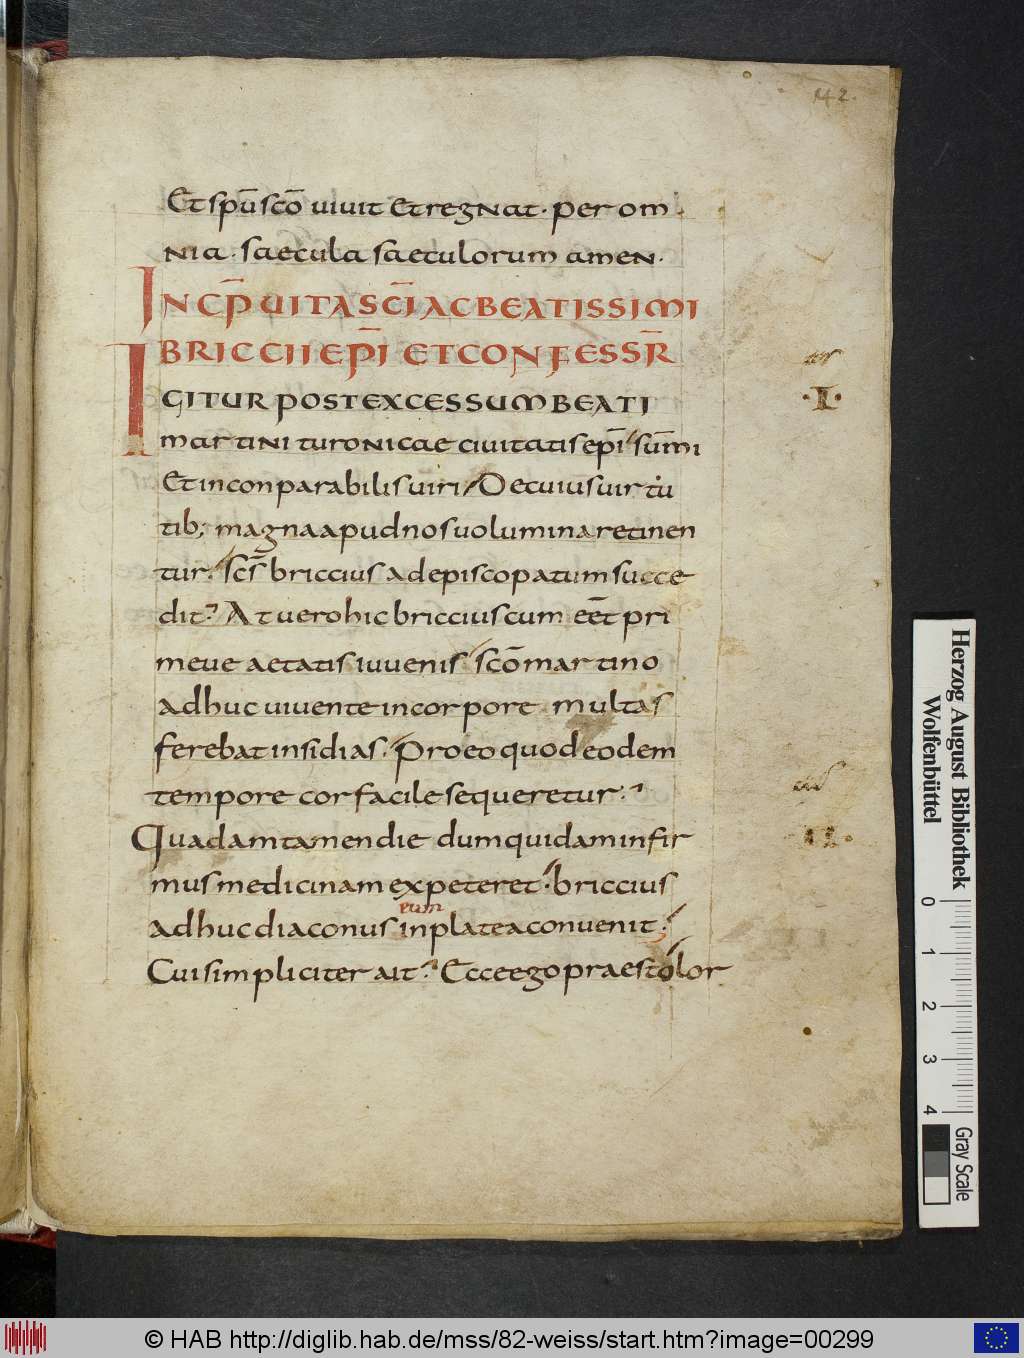 142.
Et spū scō vivit et regnat. per om
nia. saecula saeculorum amen.
INCP̄ UITA SC̄I AC BEATISSIMI
BRICCII EPI̅ ET CONFESSR̄
IGITUR POST EXCESSUM BEATI
martini turonicae civitatis epī sūmi
Et inconparabilis viri. De cuius virtu
tib; magna apud nos volumina retinen
tur. scs̄ briccius ad episcopatum succe
dit. At vero hic briccius cum eēt pri
meve aetatis iuvenis. scō martino
adhuc uiuente in corpore multas
ferebat insidias. Pro eo quod eodem
tempore cor facile sequeretur.
Quadam tamen die dum quidam infir
mus medicinam expeteret. briccius
eum
adhuc diaconus in platea convenit;
Cui simpliciter ait. Ecce ego praestolor
·I·
·II·
Herzog August Bibliothek
Wolfenbüttel
0 1 2 3 4
Gray Scale
© HAB http://diglib.hab.de/mss/82-weiss/start.htm?image=00299